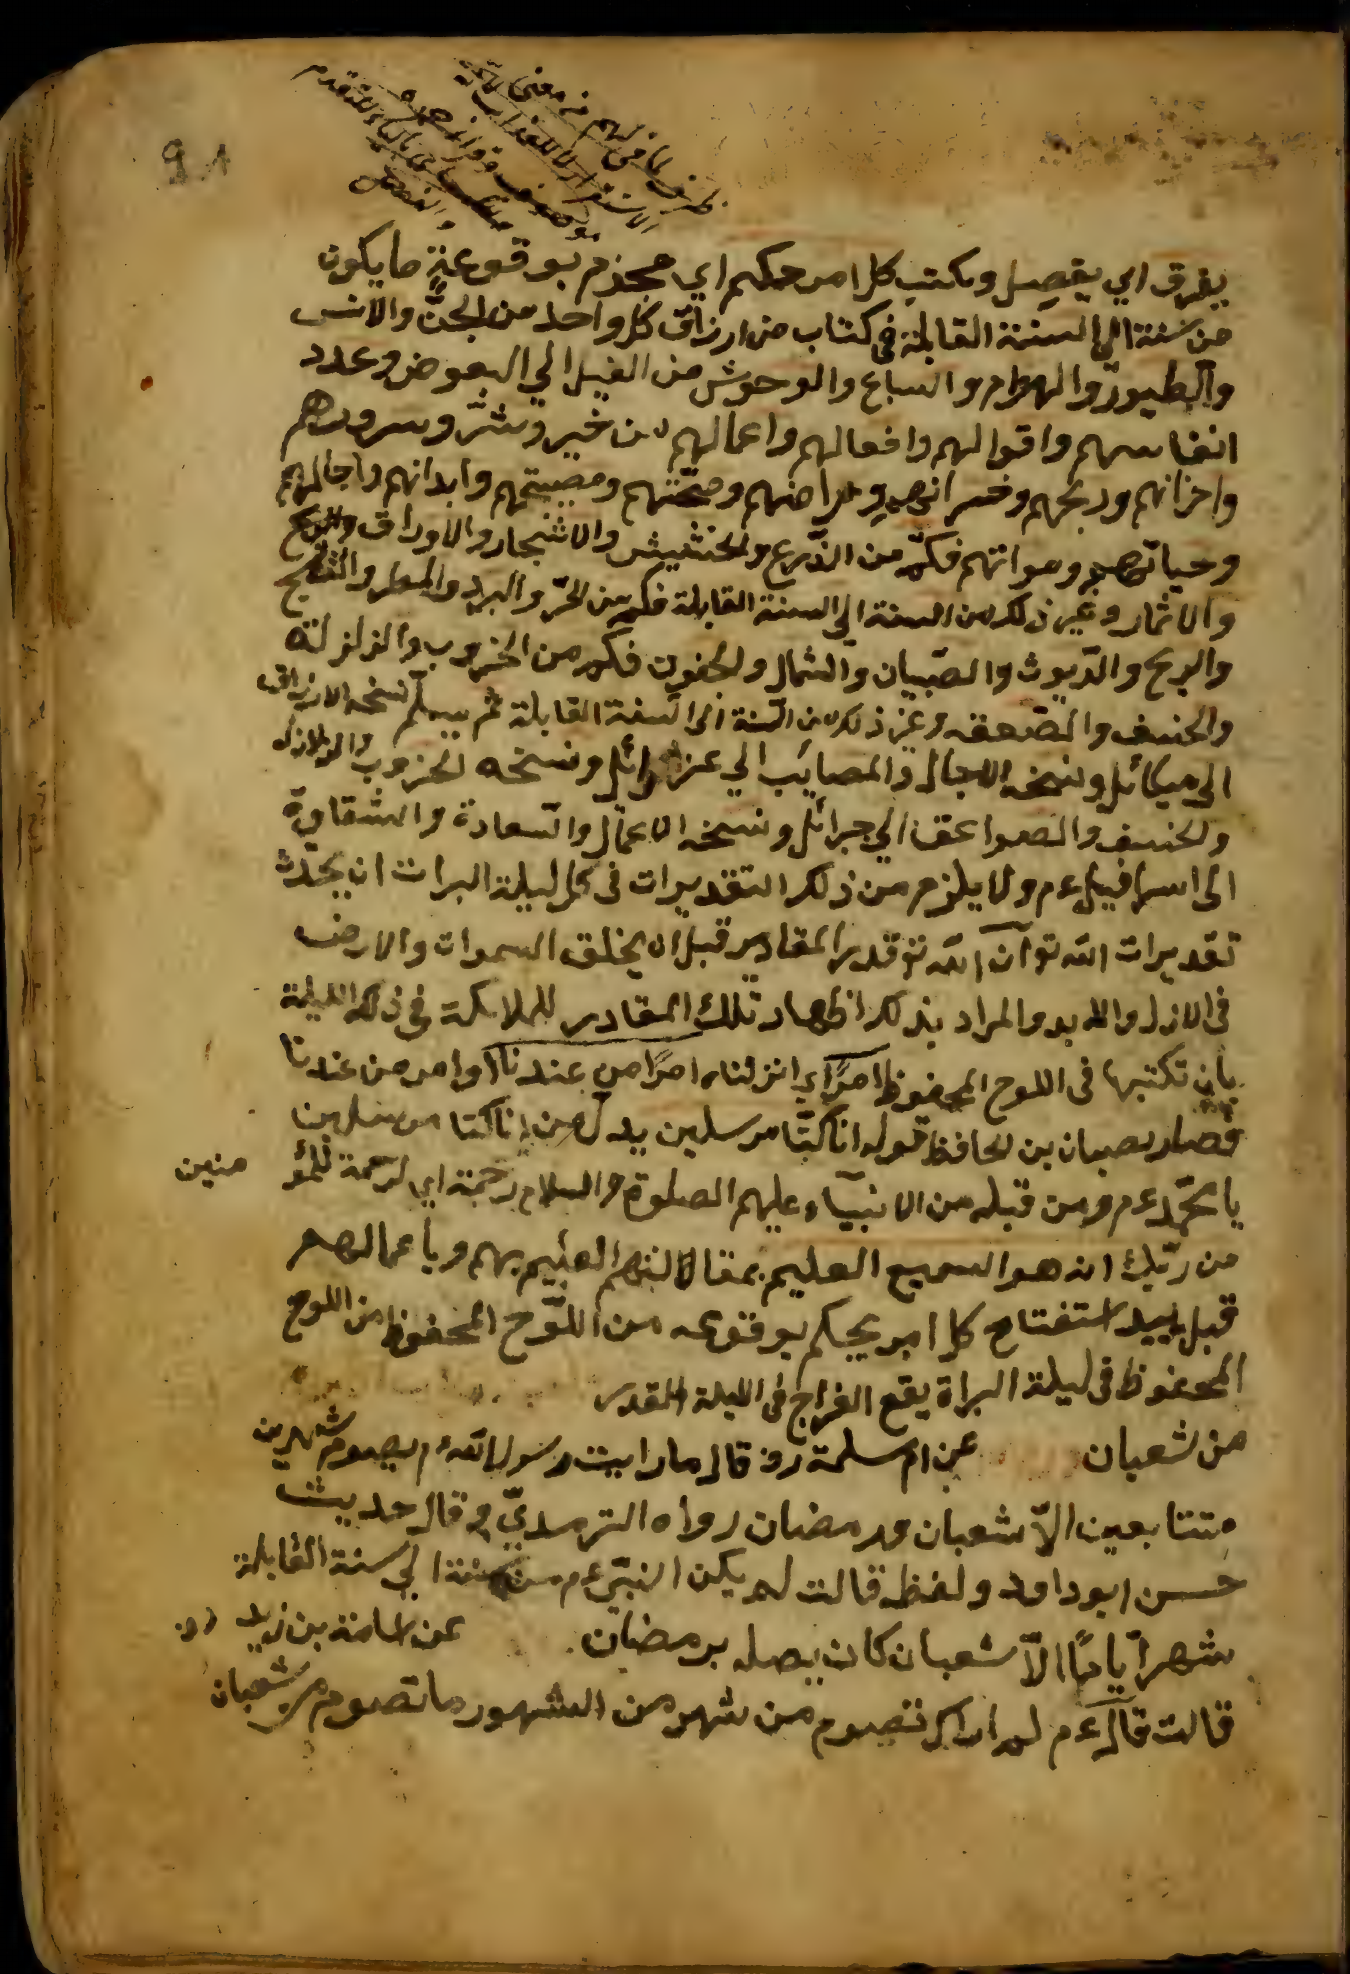 91
يفرق اي يفصل ويكتب كل امر حكيم اي محزم بوقوعه ما يكون
من سنة الى السنة القابلة فى كتاب من ارزاق كل واحد من الجنّ والانس
والطيور والهوام والسباع والوحوش من الفيل الي البعوض وعدد
انفاسهم واقوالهم وافعالهم واعمالهم من خير وشرّ وسرورهم
واحزانهم وربحهم وخسرانهم وامراضهم وصحّتهم ومصيبتهم وابدانهم واجالهم
وحياتهم ومواتهم فكم من الزّرع والحشيش والاشجار والاوراق
والاثمار وغير ذلك من السنة الي السنة القابلة فكم من الحرّ والبرد والمطر والثلج
والريح والدّيوث والصّبيان والشمال والجنوب فكم من الحروب والزلزلة
والخسف والصعقه وغير ذلك من السّنة الى السّنة القابلة ثم يسلّم نسخه الارزاق
الي ميكائل ونسخه الاجال والمصايب الي عزرائل ونسخه الحروب والزلازل
والخسف والصواعق الي جبرائل ونسخه الاعمال والسّعادة والشقاوة
الى اسرافيل ءم ولا يلزم من ذلك التقديرات فى كل ليلة البرات ان يحدث
تقديرات الله تو لان الله تو قدر المقادير قبل ان يخلق السموات والارض
فى الازل والابد والمراد بذلك اظهار تلك المقادير للملائكة في ذلك الليلة
بان تكتبها فى اللوح المحفوظ امرًا اي انزلناه امرًا من عندنا اوامر من عندنا
فصار بصبيان بن الحافظ قوله انا كنّا مرسلين بدل من انا كنا مرسلين
يا محمّد ءم ومن قبله من الانبيآء عليهم الصلوة والسلام رحمة اي لرحمة للمؤ منين
من ربّك انه هو السميع العليم بمقالالتهم العليم بهم وباعمالهم
قبل بيد استفتاح كل امر يحكم بوقوعه من اللّوح المحفوظ من اللوح
المحفوظ فى ليلة البراة يقع الفراج فى الليلة القدر
من شعبان عن ام سلمة رو قال ما رايت رسول الله ءم يصوم شهرين
متتابعين الاّ شعبان ورمضان رواه الترمديّ وقال حديث
حسن ابوداود ولفظ قالت لم يكن النبيّ ءم من سنة الي سنة القابلة
شهرا يامًا الاّ شعبان كان يصله برمضان. عن اسامة بن زيد رو
قالت قال ءم لم اراك تصوم من شهر من الشهور ما تصوم من شعبان